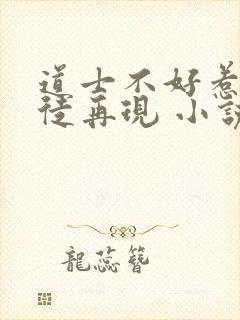 道士不好惹
徒再現 小說
龍蕊簪